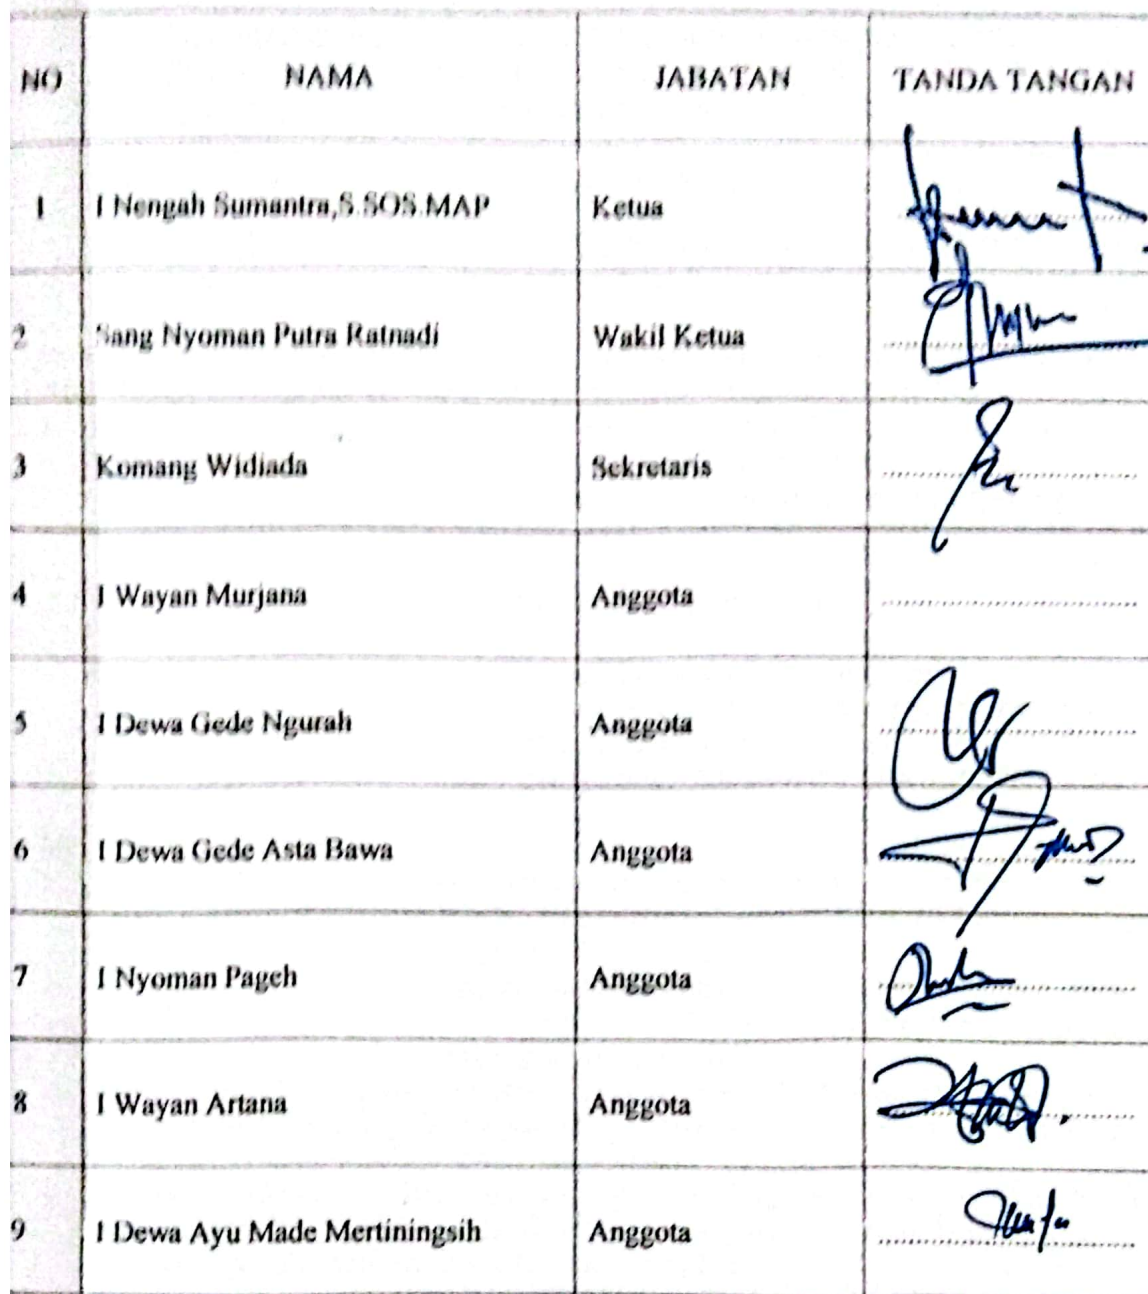 NO NAMA JABATAN TANDA TANGAN
1 I Nengah Sumantra,S.SOS.MAP Ketua
2 Sang Nyoman Putra Ratnadi Wakil Ketua
3 Komang Widiada Sekretaris
4 I Wayan Murjana Anggota
5 I Dewa Gede Ngurah Anggota
6 I Dewa Gede Asta Bawa Anggota
7 I Nyoman Pageh Anggota
8 I Wayan Artana Anggota
9 I Dewa Ayu Made Mertiningsih Anggota